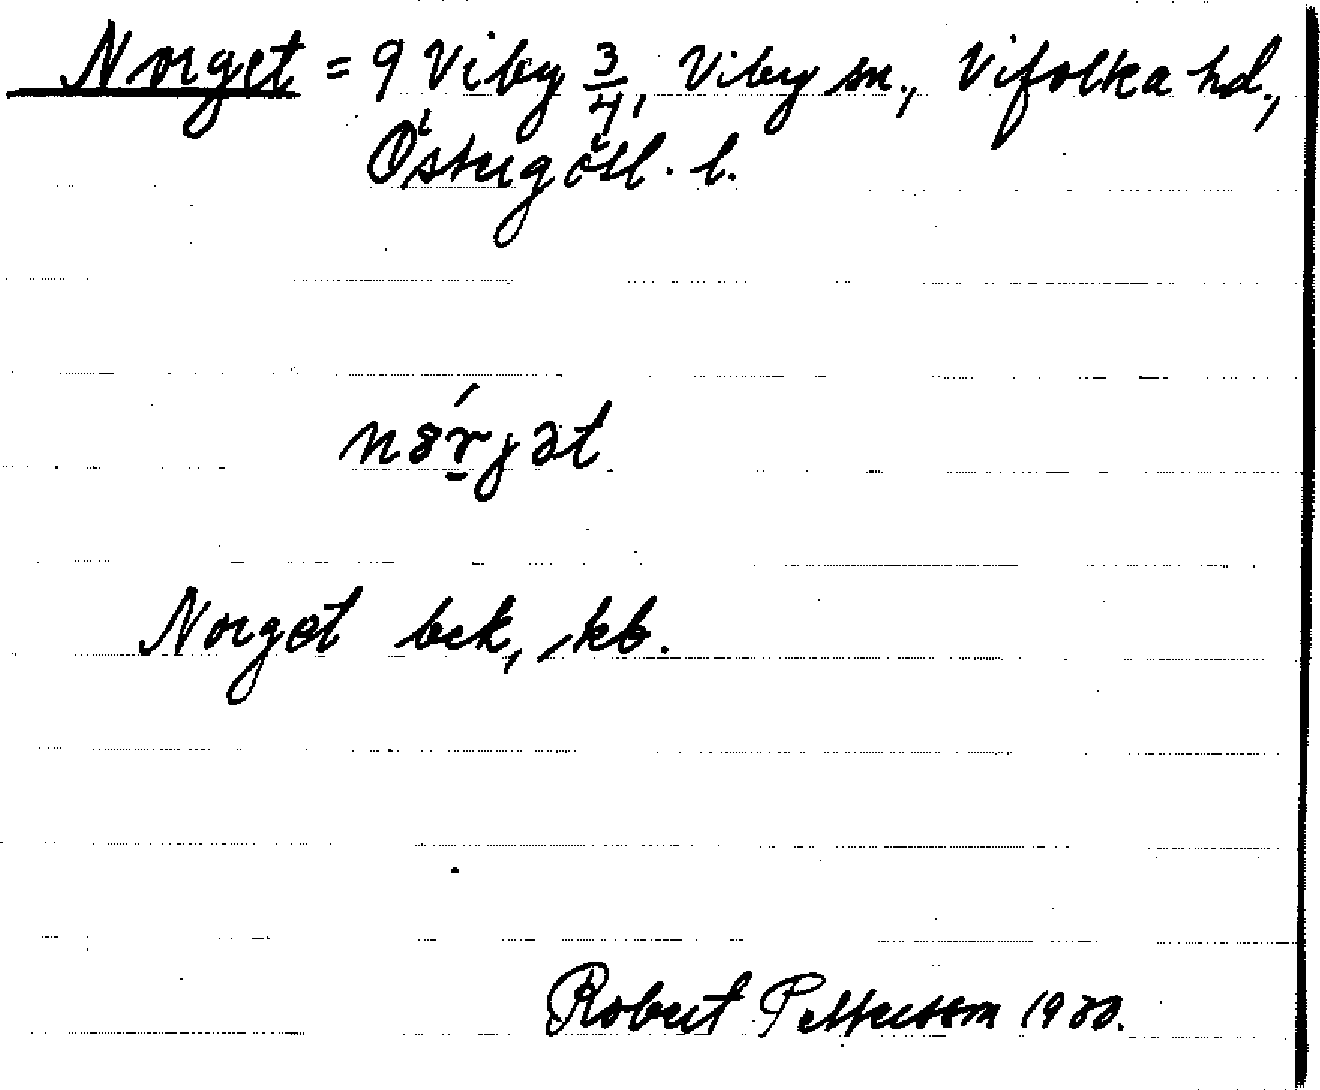 Norget = 9 Viby 3/4, Viby sn., Vifolka hd.,
Östergötl. l.
Norget bek, kb.
Robert Pettersson